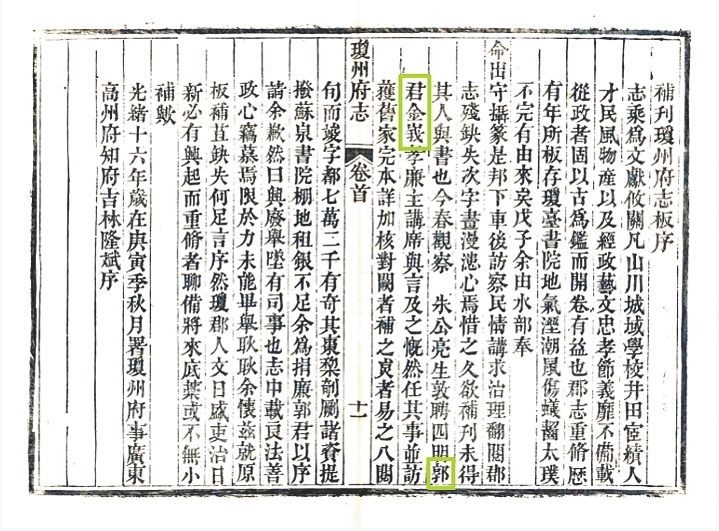 補刊瓊州府志板序
志乘為文獻攸關凡山川城域學校井田宦績人
才民風物産以及經政藝文忠孝節義靡不備載
從政者固以古為鑑而開卷有益也郡志重脩歷
有年所板存瓊臺書院地氣溼潮風傷蟻齧太璞
不完有由來矣戊子余由水部奉
命出守攝篆是邦下車後訪察民情講求治理翻閱郡
志殘缺失次字畫漫漶心焉惜之久欲補刊未得
其人與書也今春觀察 朱公亮生敦聘四明郭
君金峩孝廉主講席與言及之慨然任其事並訪
獲舊家完本詳加核對闕者補之㒹者易之八閱
旬而竣字都七萬二千有奇其棗棃剞劂諸資提
撥蘇泉書院棚地租銀不足余為捐廉郭君以序
請余歉然曰興廢舉墜有司事也志中載良法善
政心竊慕焉限於力未能畢舉耿耿余懷茲就原
板補苴缺失何足言序然瓊郡人文日盛吏治日
新必有興起而重脩者聊備將來底藁或不無小
補歟
光緒十六年歲在庚寅季秋月署瓊州府事廣東
高州府知府吉林隆斌序
瓊州府志 卷首 十一